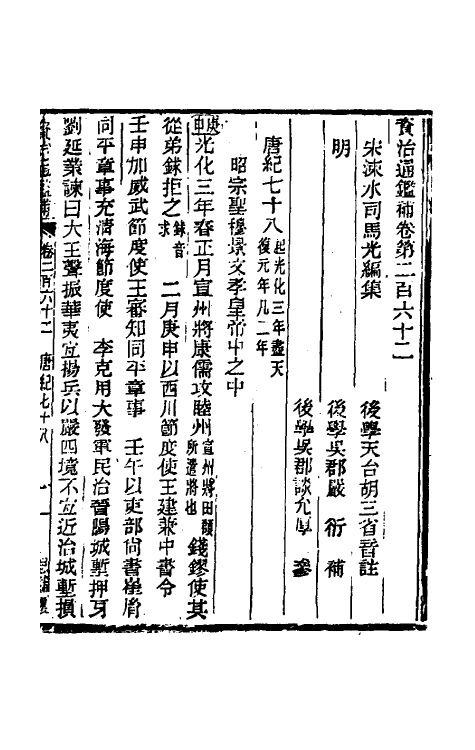 資治通鑑補卷第二百六十二
宋涑水司馬光編集
後學天台胡三省音註
明
後學吳郡嚴 衍 補
後學吳郡談允厚 參
唐紀七十八起光化三年盡天復元年凡二年
昭宗聖穆景文孝皇帝中之中
庚申光化三年春正月宣州將康儒攻睦州宣州將田頵所遣將也 錢鏐使其
從弟銶拒之銶音求 二月庚申以西川節度使王建兼中書令
壬申加威武節度使王審知同平章事 壬午以吏部尙書崔胤
同平章事充淸海節度使 李克用大發軍民治晉陽城塹押牙
劉延業諫曰大王聲振華夷宜揚兵以嚴四境不宜近治城塹損
資治通鑑補 卷二百六十二 唐紀七十八 一